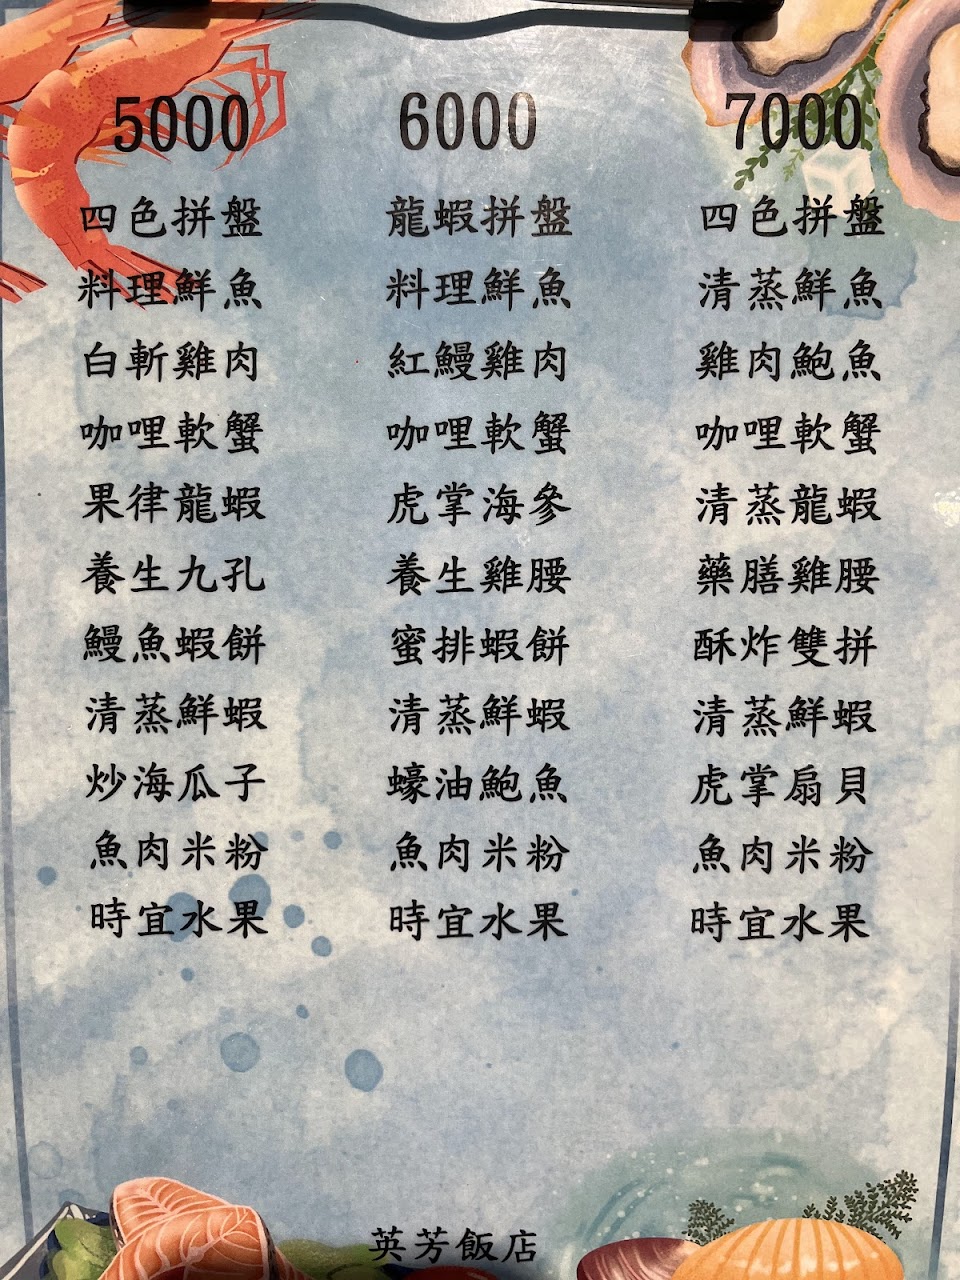 5000
四色拼盤
料理鮮魚
白斬雞肉
咖哩軟蟹
果律龍蝦
養生九孔
鰻魚蝦餅
清蒸鮮蝦
炒海瓜子
魚肉米粉
時宜水果
6000
龍蝦拼盤
料理鮮魚
紅鰻雞肉
咖哩軟蟹
虎掌海參
養生雞腰
蜜排蝦餅
清蒸鮮蝦
蠔油鮑魚
魚肉米粉
時宜水果
7000
四色拼盤
清蒸鮮魚
雞肉鮑魚
咖哩軟蟹
清蒸龍蝦
藥膳雞腰
酥炸雙拼
清蒸鮮蝦
虎掌扇貝
魚肉米粉
時宜水果
英芳飯店